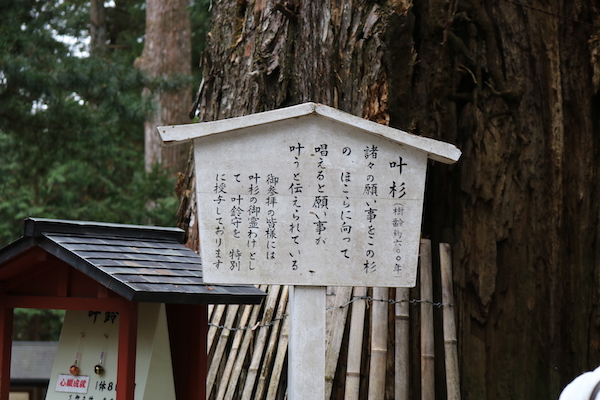 叶杉(樹齢約六〇〇年)
諸々の願い事をこの杉
の、ほこらに向って
唱えると願い事が
叶うと伝えられている
御参拝の皆様には
叶杉の御霊わけとし
て、叶鈴守を 特別
に授与しております
叶鈴
心願成就
1体80